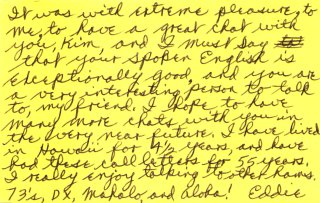 It was with extreme pleasure, to
me, to have a great chat with
you, Kim, and I must say
that your spoken English is
exceptionally good, and you are
a very interesting person to talk
to, my friend. I hope to have
many more chats with you in
the very near future. I have lived
in Hawaii for 4½ years, and have
had these call letters for 55 years.
I really enjoy talking to other hams.
73's, DX, Mahalo, and Aloha! Eddie